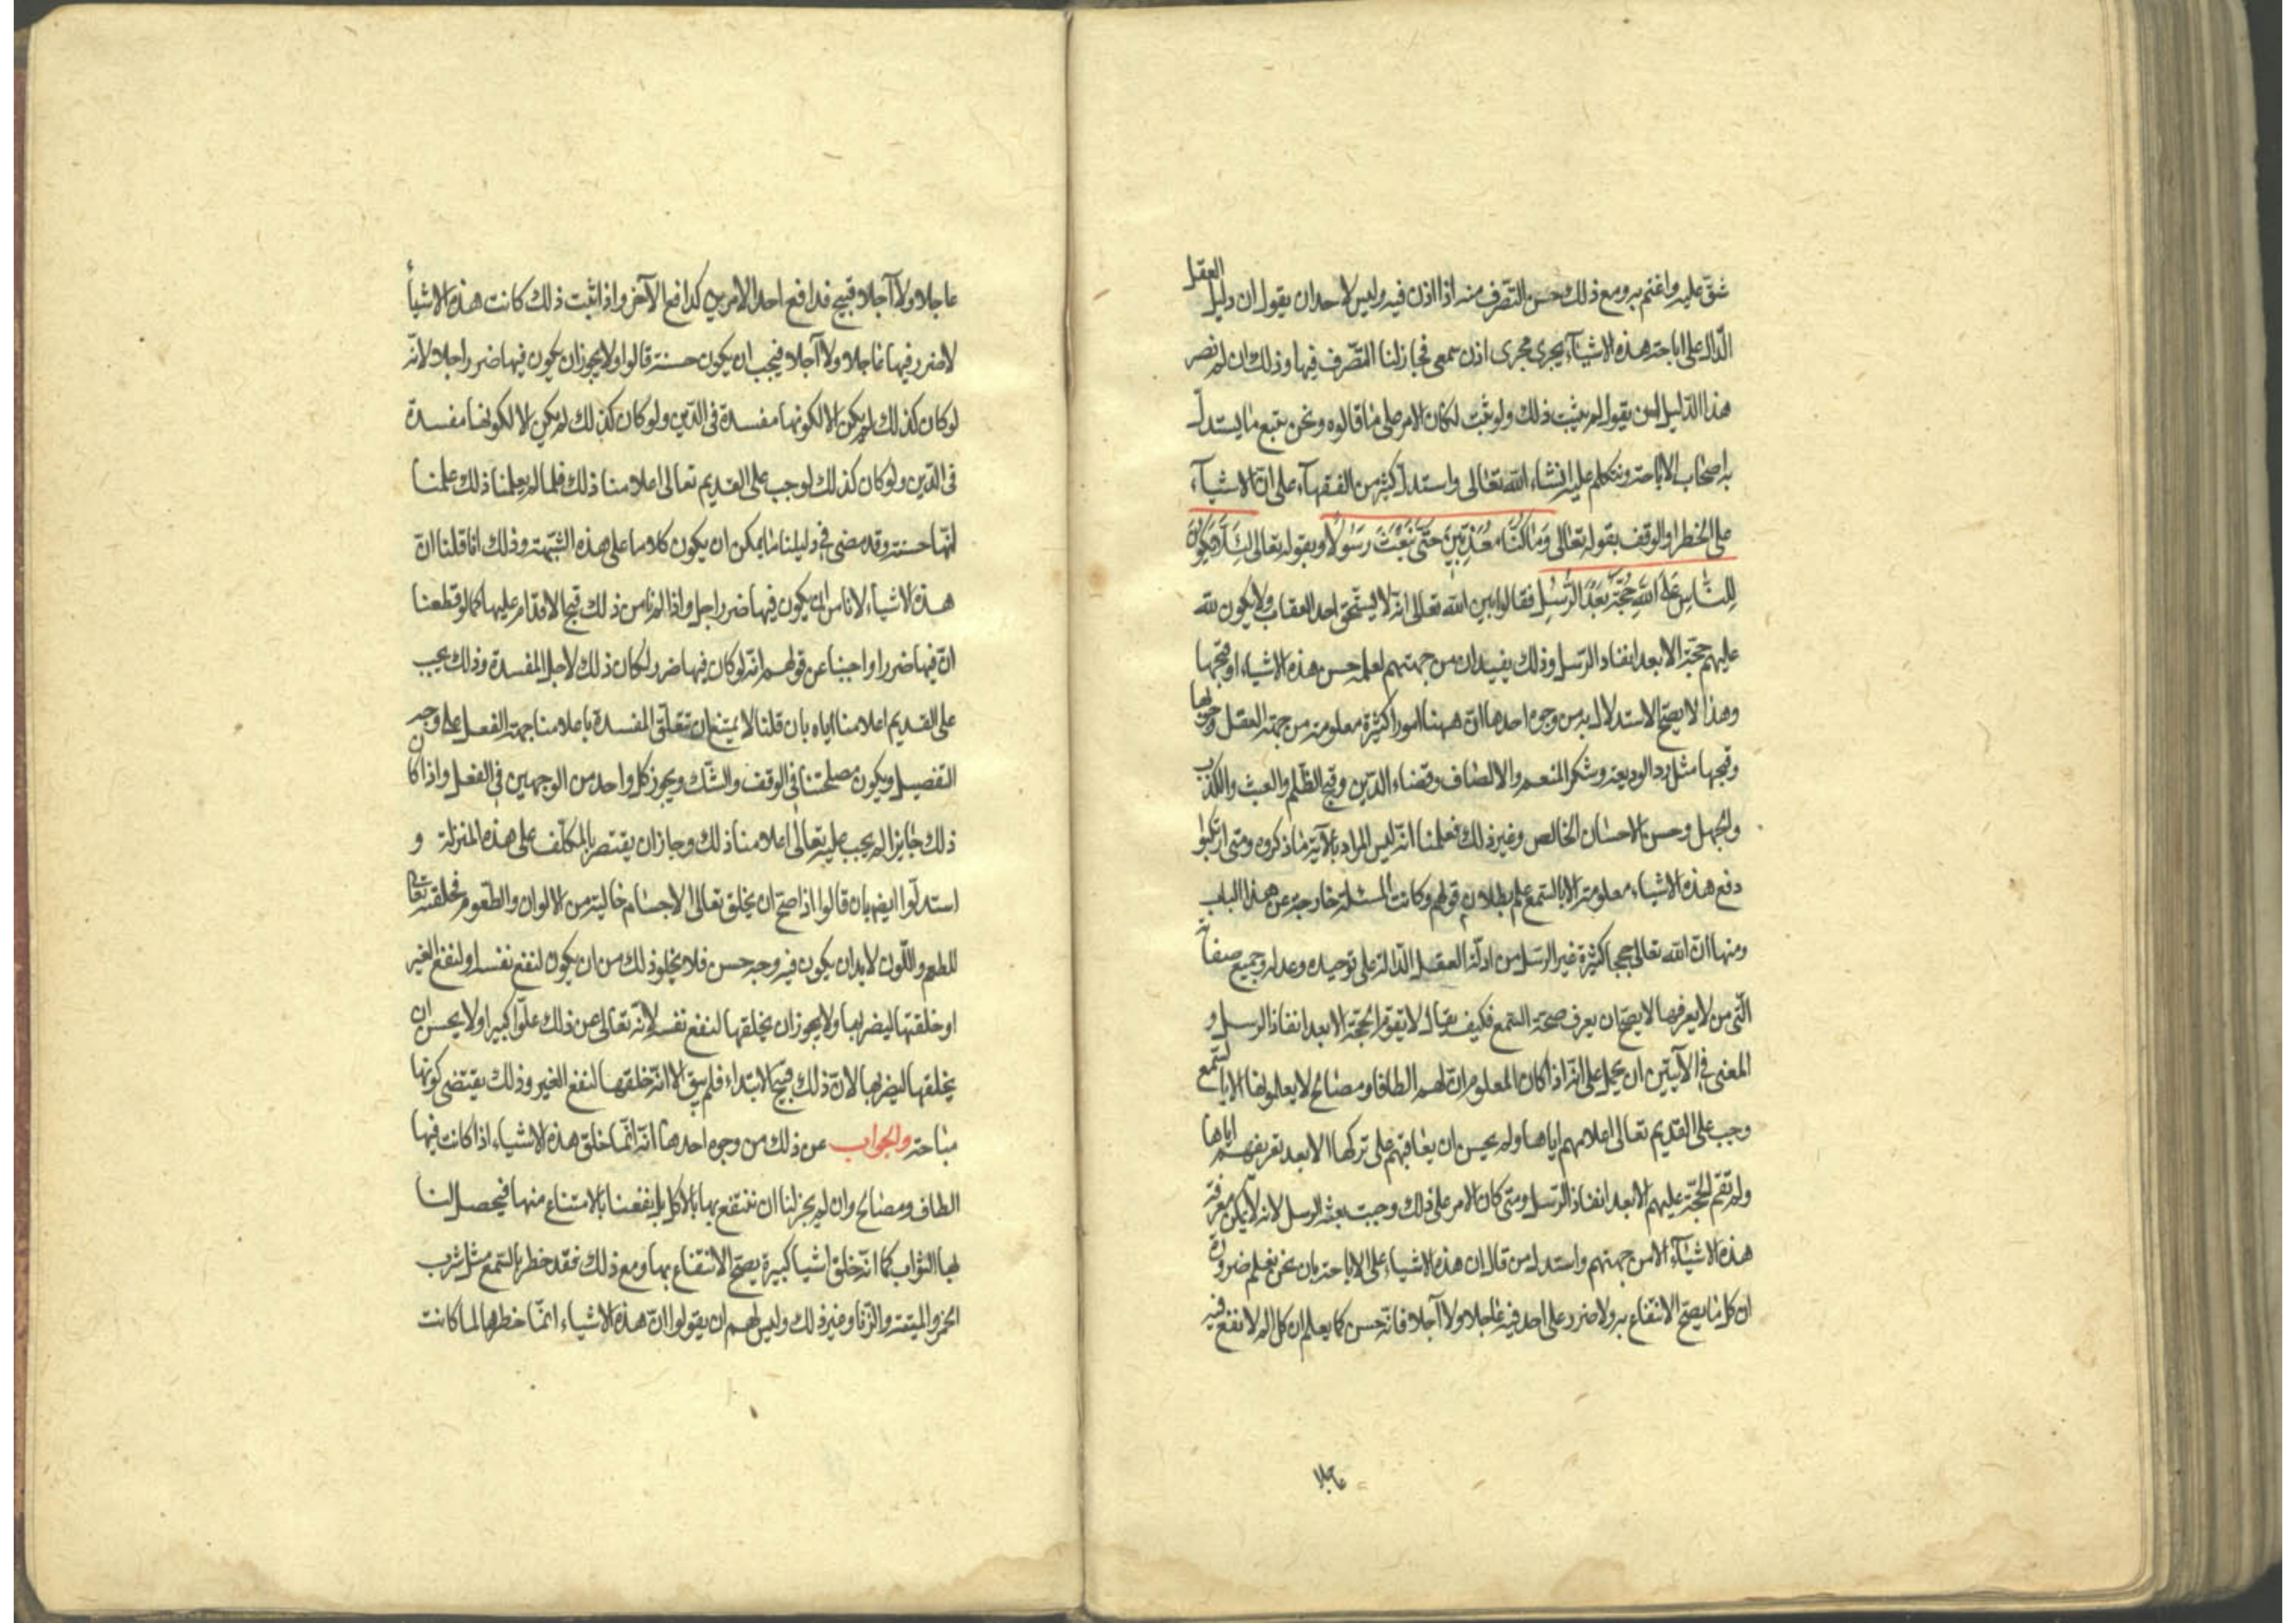 شقّ عليه واغتم به ومع ذلك حسن التصّرف منه اذا اذن فيه وليس لاحد ان يقول ان دليل العقل
الدّال على اباحة هذه الاشيآء يجرى مجرى اذن سمعى فجاز لنا التصّرف فيها وذلك ان لم نصر
هذا الدّليل لمن يقول لم يثبت ذلك ولو ثبت لكان الامر على ما قالوه ونحن نتبع ما يستدلّ
به اصحاب الاباحة ونتكلم عليه انشاء الله تعالى واستدلّ كثير من الفقهآء على انّ الاشيآء
على الحظر او الوقف بقوله تعالى وَمَا كُنّا مُعَذِّبِينَ حَتّى نَبْعَثَ رَسُولاً وبقوله تعالى لِئَلاّ يَكُونَ
لِلنَّاسِ عَلَى اللهِ حُجَّةٌ بَعْدَ الرُّسُلِ فقالوا بين الله تعالى انّه لا يستحق احد العقاب ولا يكون لله
عليهم حجّة الا بعد انفاد الرّسل وذلك يفيد ان من جهتهم يعلم حسن هذه الاشياء او قبحها
وهذا لا يصحّ الاستدلال به من وجوه احدها انّ ههنا امورا كثيرة معلومة من جهة العقل وجوبها
وقبحها مثل ردّ الوديعة وشكر المنعم والانصاف وقضاء الدّين وقبح الظّلم والعبث والكذب
والجهل وحسن الاحسان الخالص وغير ذلك فعلمنا انّه ليس المراد بالآية ما ذكروه ومتى ارتكبوا
دفع هذه الاشياء معلومة الا بالسّمع علم بطلان قولهم وكانت المسئلة خارجة عن هذا الباب
ومنها انّ الله تعالى حججا كثيرة غير الرّسل من ادلّة العقل الدّالة على توحيده وعدله وجميع صفاته
الّتى من لا يعرفها لا يصحّ ان يعرف صحّة السّمع فكيف يقال لا تقوم الحجّة الا بعد انفاذ الرسل و
المعنى فى الآيتين ان يحمل على انّه اذا كان المعلوم انّ لهم الطافا ومصالح لا يعلمونها الا بالسّمع
وجب على القديم تعالى اعلامهم اياها ولم يحسن ان يعاقبهم على تركها الا بعد تعريفهم اياها
ولم تقم الحجّة عليهم الا بعد انفاذ الرّسل ومتى كان الامر على ذلك وجبت بعثة الرسل لانه لا يمكن معرفة
هذه الاشيآء الا من جهتهم واستدل من قال ان هذه الاشياء على الاباحة بان نحن نعلم ضرورة
ان كل ما يصحّ الانتفاع به ولا ضرر على احد فيه عاجلا ولا آجلا فانّه حسن كما يعلم ان كل الم لا نفع فيه
عاجلا ولا آجلا قبيح فدافع احد الامرين كدافع الآخر واذا ثبت ذلك كانت هذه الاشيأ
لا ضرر فيها عاجلا ولا آجلا فيجب ان يكون حسنة قالوا ولا يجوز ان يكون فيها ضرر اجلا لانّه
لو كان كذلك لم يكن الا لكونها مفسدة فى الدّين ولو كان كذلك لم يكن الا لكونها مفسدة
فى الدّين ولو كان كذلك لوجب على القديم تعالى اعلامنا ذلك فلما لم يعلمنا ذلك علمنا
انّها حسنة وقد مضى فى دليلنا ما يمكن ان يكون كلاما على هذه الشّبهة وذلك انا قلنا انّ
هذه الاشياء لا نامن ان يكون فيها ضرر اجل واذا لم نامن ذلك قبح الاقدام عليها كما لو قطعنا
انّ فيها ضررا واجبنا عن قولهم انّه لو كان فيها ضرر لكان ذلك لاجل المفسدة وذلك يجب
على القديم اعلامنا اياه بان قلنا لا يمتنع ان تتعلّق المفسدة باعلامنا جهة الفعل على وجه
التفصيل ويكون مصلحتنا فى الوقف والشّك ويجوز كل واحد من الوجهين فى الفعل واذا كان
ذلك جايزا لم يجب عليه تعالى اعلامنا ذلك وجاز ان يقتصر بالمكلّف على هذه المنزلة و
استدلّوا ايضا بان قالوا اذا صحّ ان يخلق تعالى الاجسام خالية من الالوان والطّعوم فخلقه تعالى
للطعم واللّون لا بد ان يكون فيه وجه حسن فلا يخلو ذلك من ان يكون لنفع نفسه او لنفع الغير
او خلقتها ليضرّ بها ولا يجوز ان يخلقها لنفع نفسه لانّه تعالى عن ذلك علوّا كبيرا ولا يحسن ان
يخلقها ليضرّ بها لانّ ذلك قبيح الابتداء فلم يبق الا انّه خلقها لنفع الغير وذلك يقتضى كونها
مباحة والجواب عن ذلك من وجوه احدها انّه انّما خلق هذه الاشياء اذا كانت فيها
الطاف ومصالح وان لم يجز لنا ان ننتفع بها بالاكل بل ينفعنا بالامتناع منها فيحصل لنا
لها الثواب كما انّه خلق اشيا كبيرة يصحّ الانتفاع بها ومع ذلك فقد حظرها بالسّمع مثل شرب
الخمر والميتة والزّنا وغير ذلك وليس لهم ان يقولوا انّ هذه الاشياء انمّا حظرها لما كانت